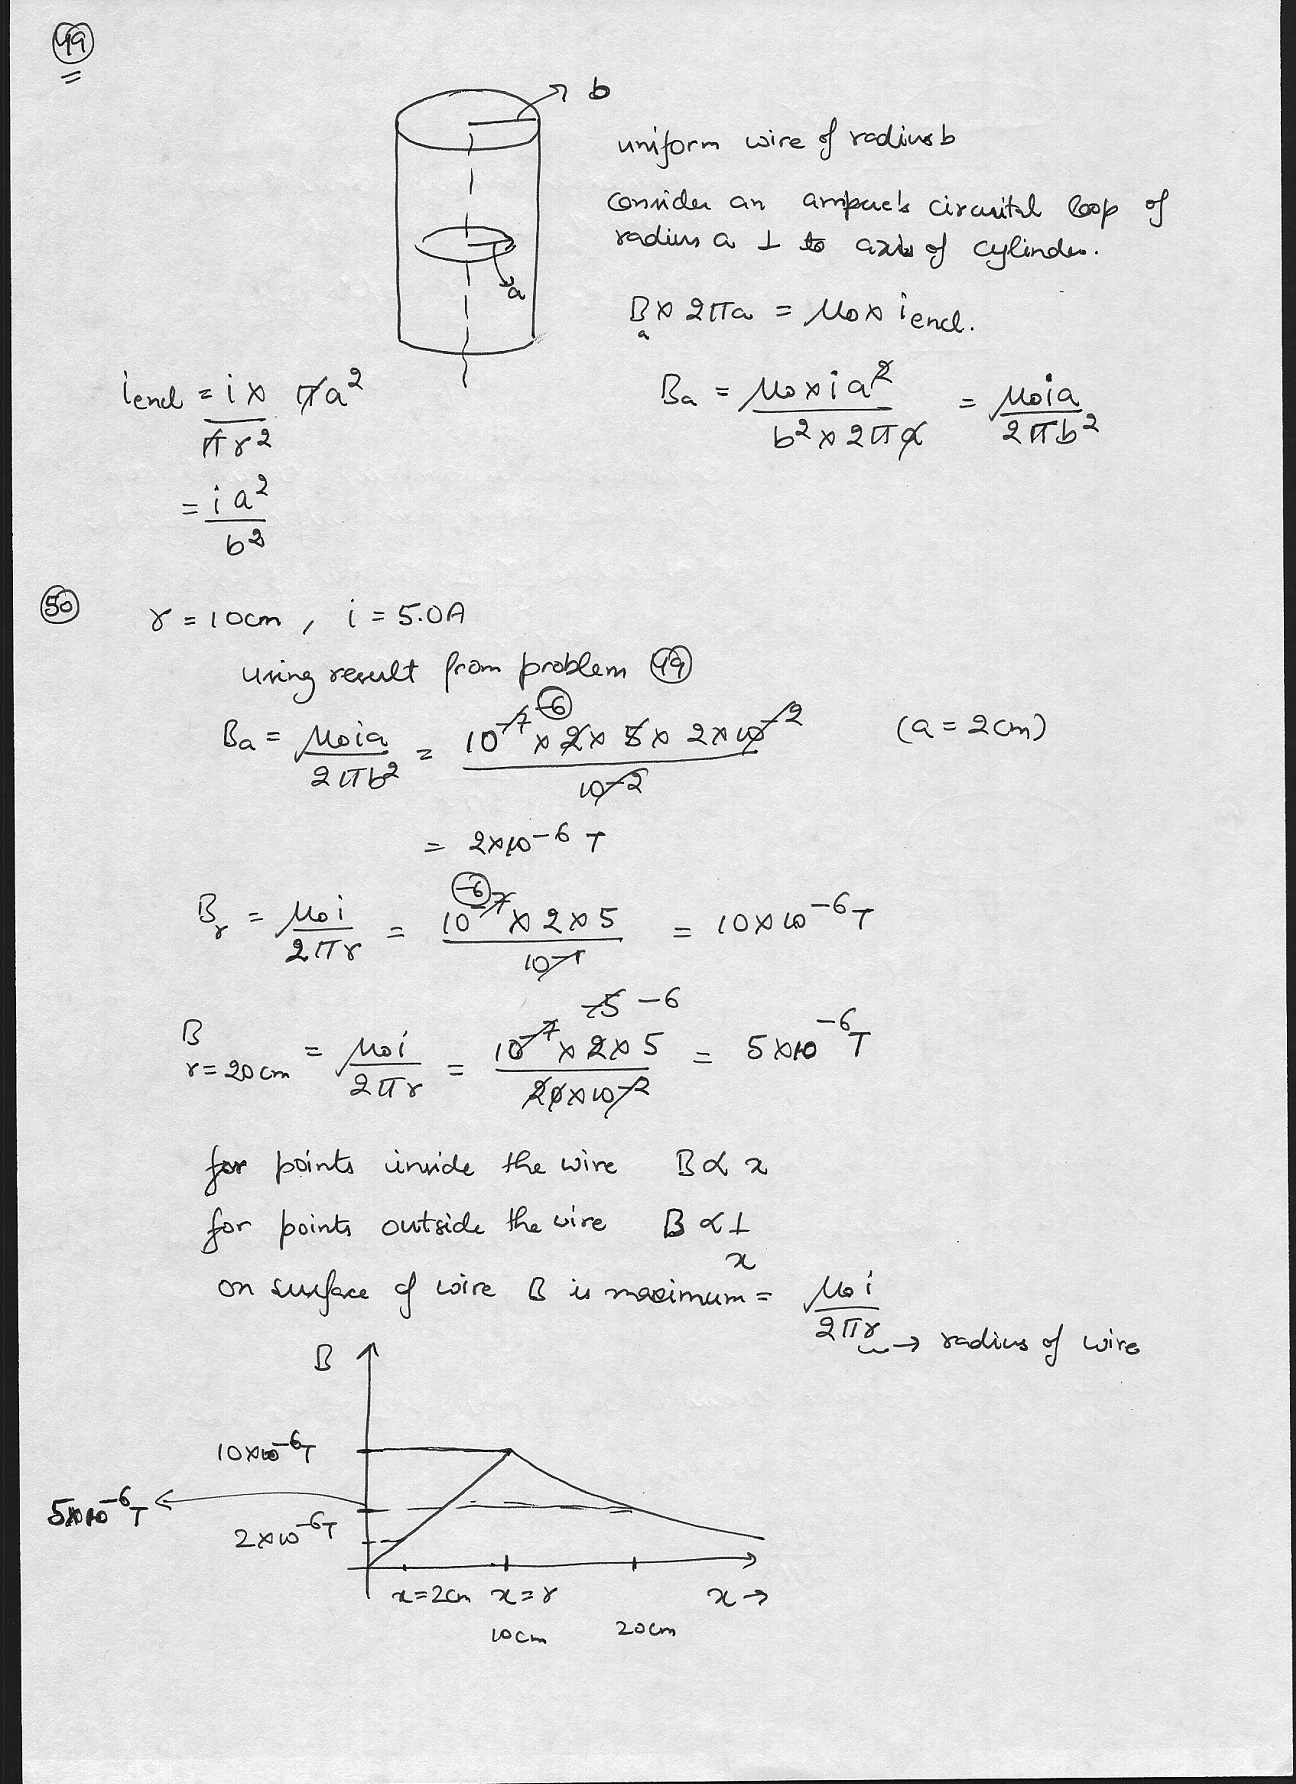 49
b
uniform wire of radius b
consider an ampere's circuital loop of
radius a ⊥ to axis of cylinder.
a
B_a × 2πa = μ₀ × i encl.
i encl = i/πr² × πa²
B_a = μ₀ × i a²/b² × 2πa = μ₀ia/2πb²
= i a²/b²
50
r = 10cm, i = 5.0A
using result from problem 49
B_a = μ₀ia/2πb² = 10⁻⁷ ⁻⁶ × 2 × 5 × 2 × 10⁻²/10⁻² (a = 2cm)
= 2×10⁻⁶ T
B_r = μ₀i/2πr = 10⁻⁷ ⁻⁶ × 2 × 5/10⁻¹ = 10×10⁻⁶ T
-5 -6
B r=20cm = μ₀i/2πr = 10⁻⁷ × 2 × 5/20×10⁻² = 5×10⁻⁶ T
for points inside the wire B ∝ x
for points outside the wire B ∝ 1/x
on surface of wire B is maximum = μ₀i/2πr → radius of wire
B
10×10⁻⁶T
5×10⁻⁶T
2×10⁻⁶T
x=2cm x=r x→
10cm 20cm